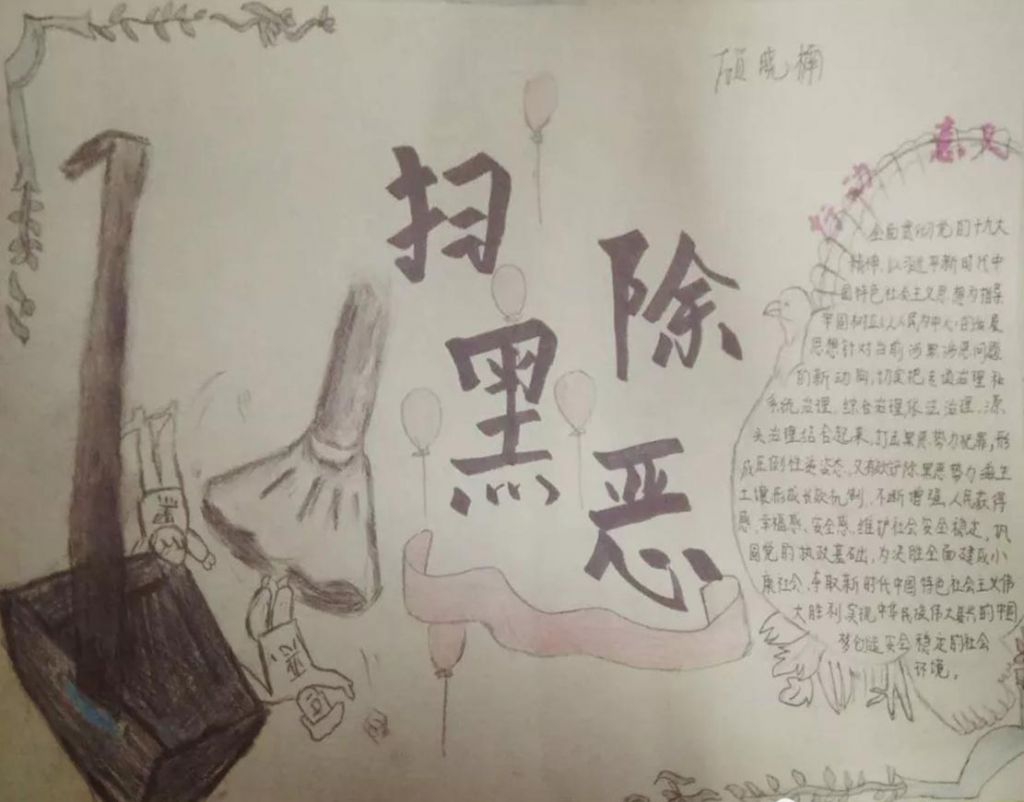 晓楠
扫黑
除恶
行动意义
全面贯彻党的十九大
精神,以习近平新时代中
国特色社会主义思想为指导
牢固树立以人民为中心的发展
思想针对当前涉黑涉恶问题
的新动向,切实把专项治理和
系统治理、综合治理、依法治理、源
头治理结合起来,打击黑恶势力犯罪,形
成压倒性姿态,又有铲除黑恶势力滋生
土壤形成长效机制,不断增强人民获得
感、幸福感、安全感,维护社会安全稳定,巩
固党的执政基础,为决胜全面建成小
康社会、夺取新时代中国特色社会主义伟
大胜利实现中华民族伟大复兴的中国
梦创造安全稳定的社会
环境。
黑
恶